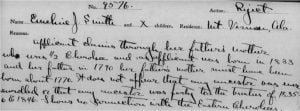 No. 4576. Action: Reject
Emeline J Smith and X children. Residence: Mt Vernon, Ala.
Applicant claims through her father's mother
who was ½ Cherokee and applicant was born in 1833
and her father in 1790 her fathers mother must have been
born about 1770. It does not appear that any ancestor was ever
enrolled or that any ancestor was party to the treaties of 1835-
6 to 1846. Shows no connection with the Eastern Cherokees.